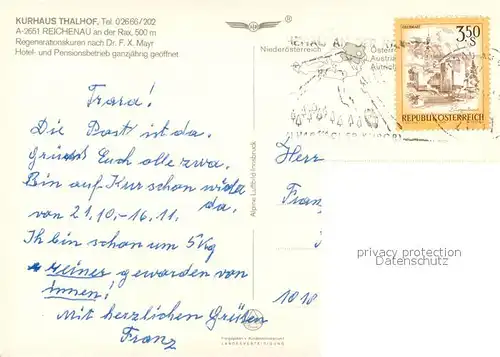 KURHAUS THALHOF, Tel. 0 26 66 / 202
A-2651 REICHENAU an der Rax, 500 m
Regenerationskuren nach Dr. F. X. Mayr
Hotel- und Pensionsbetrieb ganzjährig geöffnet
Niederösterreich
Austria
3,50
S
REPUBLIK ÖSTERREICH
Trara!
Die Post ist da.
Grüsst Euch alle zwa.
Bin auf Kur schon wieda
da.
von 21.10.-16.11.
Ich bin schon um 5 Kg
reines geworden von
innen!
Mit herzlichen Grüßen
Franz
Alpine Luftbild Innsbruck
Herr
Franz
1010
privacy protection
Datenschutz
LANDESVERTEIDIGUNG